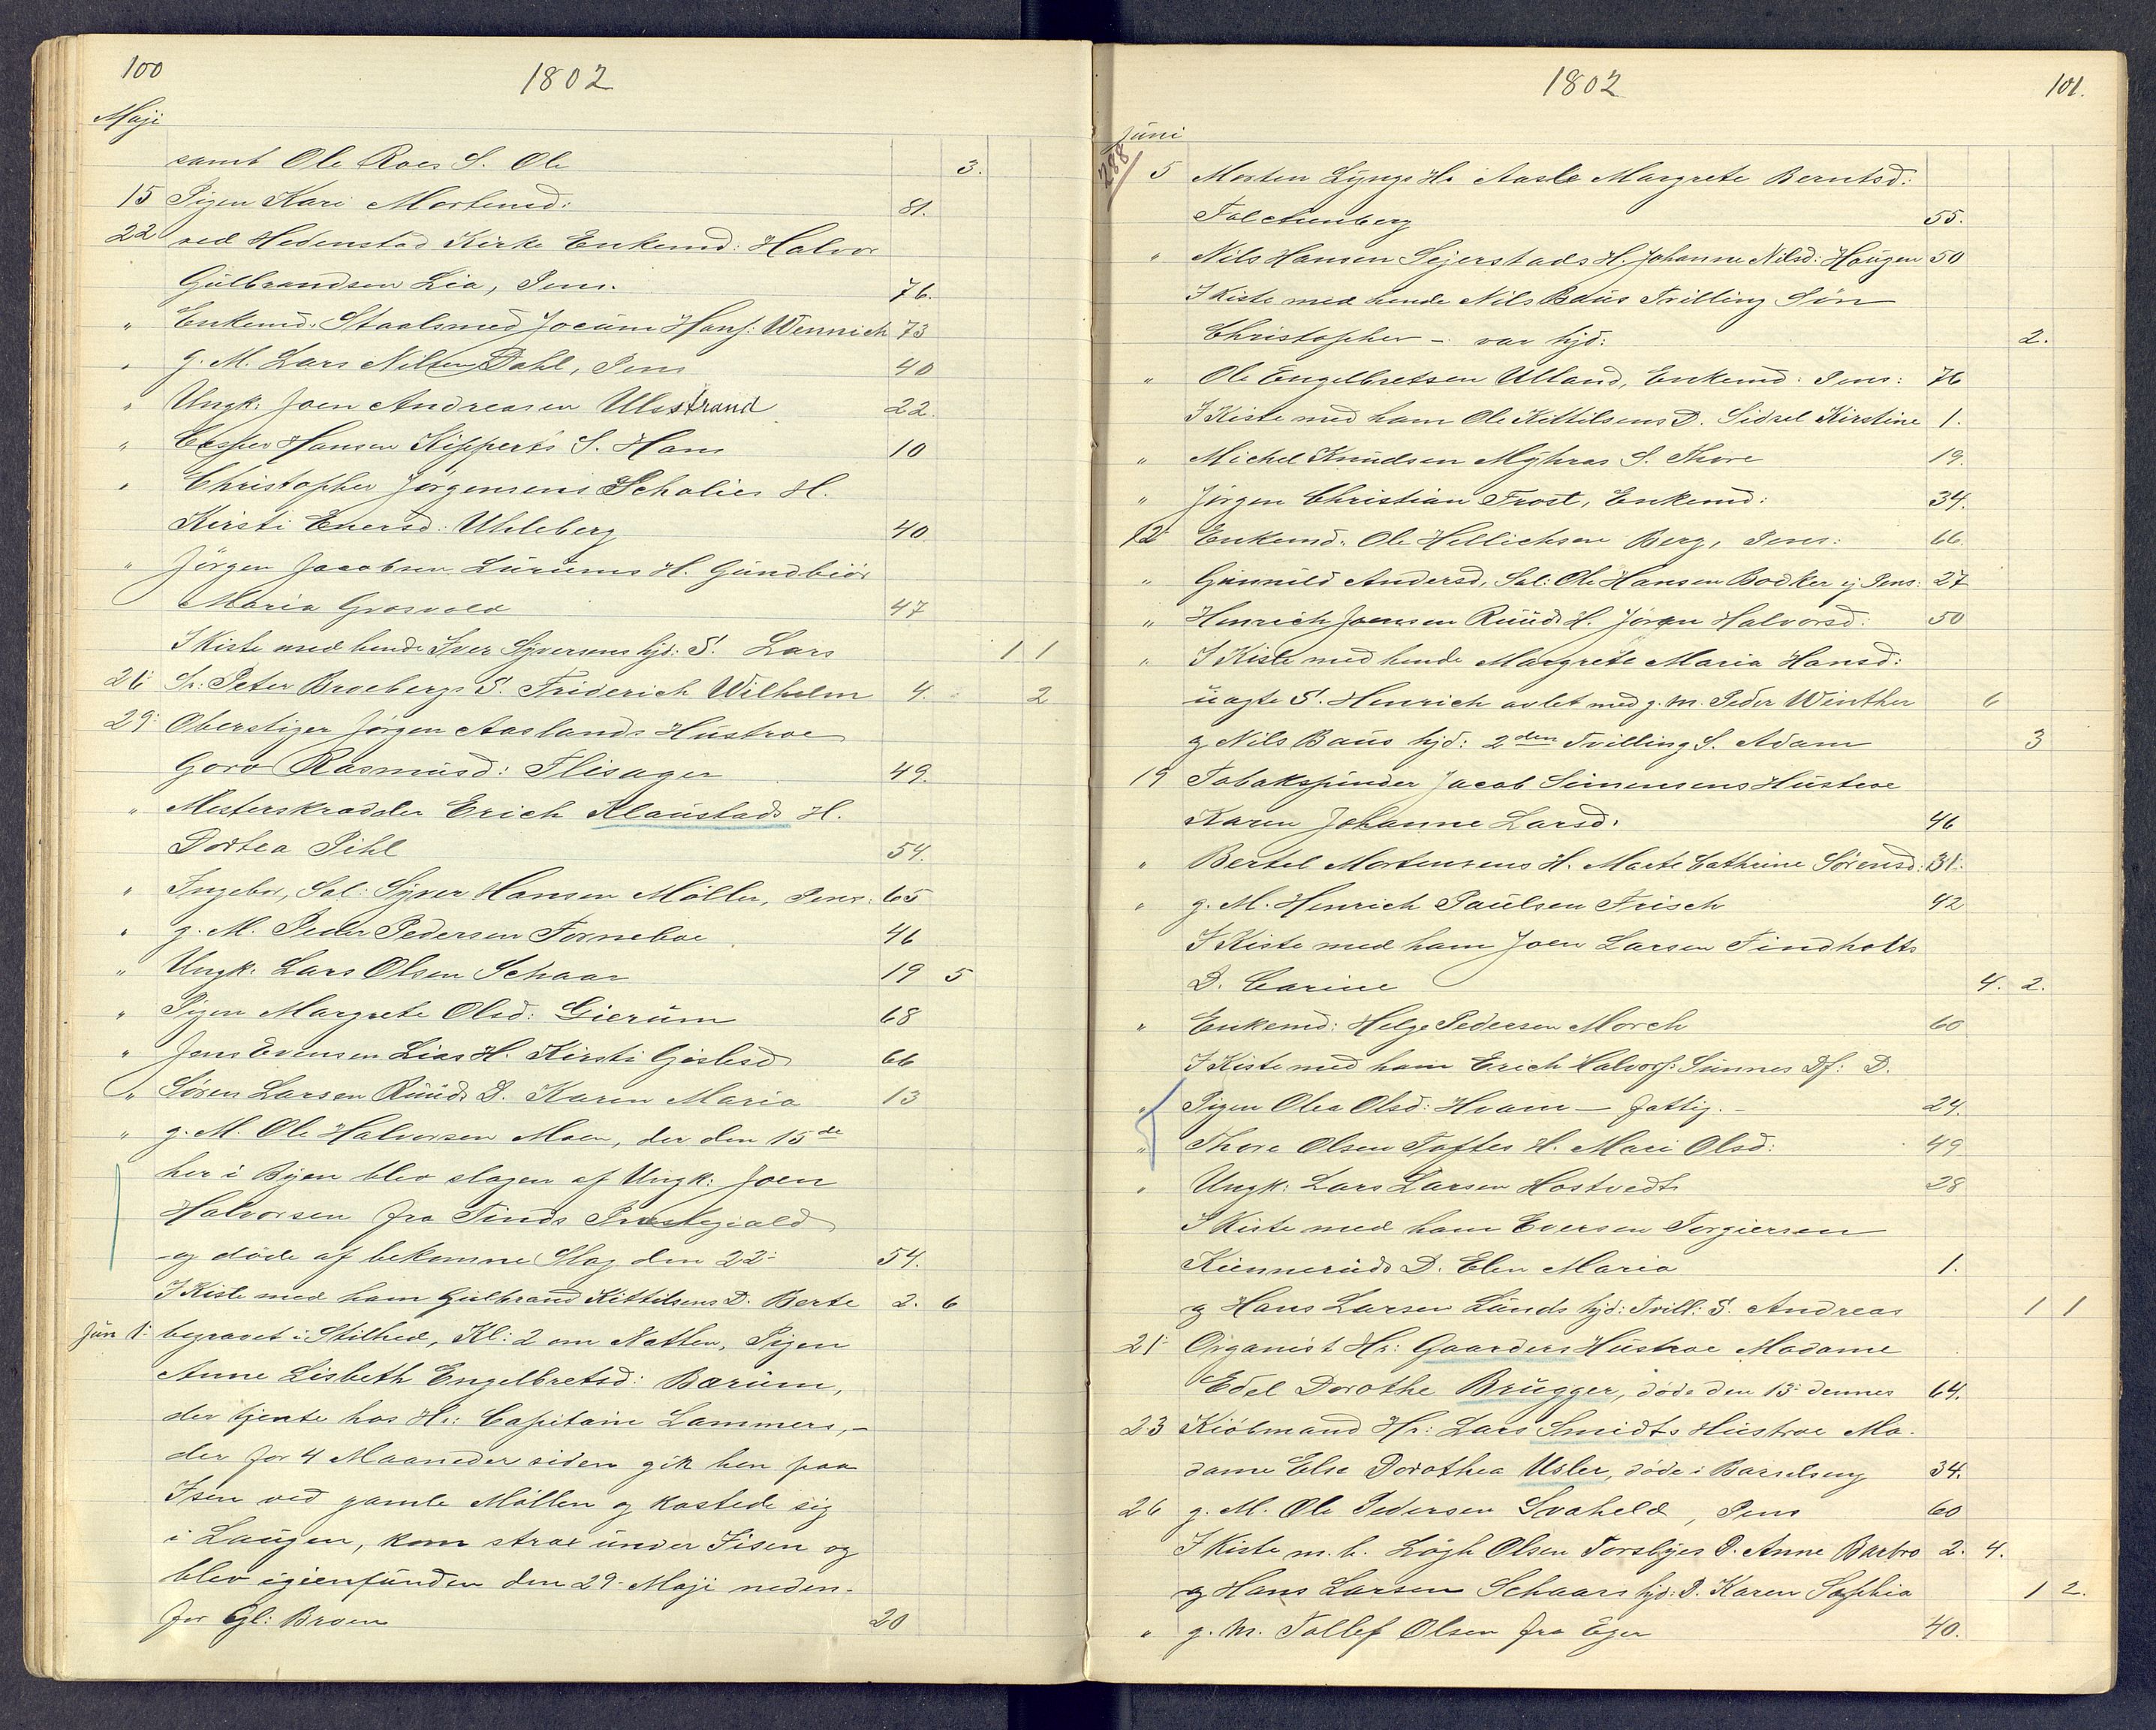 100
1802
Maji
samt Ole Roes S. Ole 3.
15 Pigen Kari Mortensd: 81.
22 ved Hedenstad Kirke Enkemd: Halvor
Gülbrandsen Lia, Pens. 76.
" Enkemd. Staalsmed Jocüm Hans: Wennich 73
" g. M. Lars Nilsen Dahl, Pens 40
" Ungk: Joen Andreasen Ulsstrand 22
" Casper Hansen Kipperts S. Hans 10
" Christopher Jörgensens Scholies H.
Kirsti Enersd: Uhleberg 40
" Jörgen Jacobsen Lürüms H. Gündbiör
Maria Grosvold 47
I Kiste med hende Iver Syversens hjd: S. Lars 1 1
26 Sr: Peter Broebergs S. Friderich Wilhelm 4. 2
29: Oberstiger Jörgen Aaslands Hüstroe
Goro Rasmüsd: Flisager 49.
" Mesterskradder Erich Klaüstads H.
Dortea Pihl 54.
" Ingebor, Sal: Syver Hansen Möller, Pens. 65
" g. M. Peder Pedersen Forneboe 46
" Ungk: Lars Olsen Schaar 19 5
" Pigen Margrete Olsd: Gierüm 68
" Jens Evensen Lias H. Kirsti Gislesd 66
" Sören Larsen Rüüds D. Karen Maria 13
" g. M. Ole Halvorsen Moen, der den 15de
her i Byen blev slagen af Ungk: Joen
Halvorsen fra Tinds Prestegiald
og döde af bekomne Slag den 22: 54.
I Kiste med ham Gülbrand Kittilsens D. Berte 2. 6
Jün 1: begravet i Stilhed, Kl: 2 om Natten, Pigen
Anne Lisbeth Engelbretsd: Bærüm,
der tjente hos Hr: Capitain Lammers, –
der for 4 Maaneder siden gik hen paa
Isen ved gamle Möllen og kastede sig
i Laügen, kom strax ünder Iisen og
blev igienfünden den 29. Maji neden-
for Gl: Broen 20
1802
101.
Jüni
288
5 Morten Lyngs H. Aasle Margrete Berntsd:
Falchenberg 55.
" Nils Hansen Sejerstads H. Johanne Nilsd: Haügen 50
I Kiste med hende Nils Baüs Tvilling Sön
Christopher – var hjd: 2.
" Ole Engelbretsen Ulland, Enkemd: Pens: 76
I Kiste med ham Ole Kittilsens D. Sidsel Kirstine 1.
" Michel Knüdsen Myhras S. Thore 19.
" Jörgen Christian Frost, Enkemd: 34.
12 Enkemd: Ole Hellichsen Berg, Pens: 66.
" Günnild Andersd, Sal: Ole Hansen Bödker ej Pens: 27
" Henrich Joensen Rüüds H. Jöran Halvorsd: 50
" I Kiste med hende Margrete Maria Hansd:
üagte S. Henrich avlet med g. m. Peder Winther 6
og Nils Baüs hjd: 2den Tvilling S. Adam 3
19 Tobakspinder Jacob Simensens Hüstroe
Karen Johanne Larsd: 46
" Bertel Mortensens H. Marte Cathrine Sörensd: 31.
" g. M. Henrich Paülsen Frisch 42
I Kiste med ham Joen Larsen Findholts
D. Carine 4. 2.
" Enkemd: Helge Pedersen Morch 60
I Kiste med ham Erich Halvors: Sünnes Df: D.
" Pigen Olea Olsd: Hvam – fattig. – 24.
" Thore Olsen Tofte's H. Mari Olsd: 49
" Ungk: Lars Larsen Hostvedt 28
I Kiste med ham Eversen Torgiersen
Kiennerüds D. Elen Maria 1.
og Hans Larsen Lünds hjd: Tvill: S. Andreas 1 1
21 Organist Hr: Gaarders Hüstroe Madame
Edel Dorothe Brügger, döde den 15: dennes 64.
23 Kiöbmand Hr: Lars Smidts Hüstroe Ma-
dame Else Dorothea Usler, döde i Barselseng 34.
26 g. M. Ole Pedersen Svaheld, Pens 60
I Kiste m. h. Högh Olsen Torsbyes D. Anne Barbro 2. 4.
og Hans Larsen Schaars hjd: D. Karen Sophia 1 2.
" g. M. Tollef Olsen fra Eger 40.